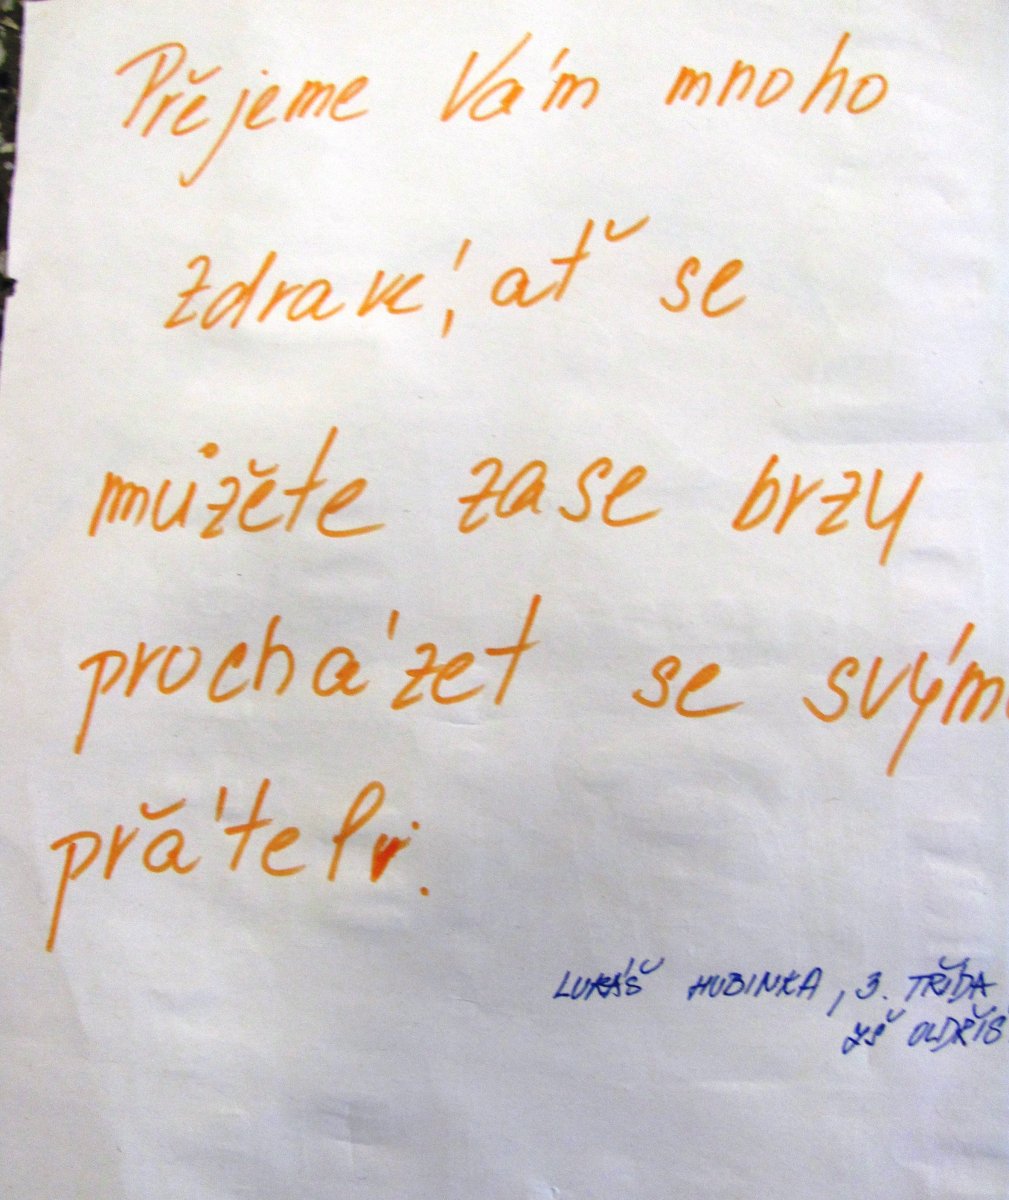 Přejeme Vám mnoho
zdravé, ať se
můžete zase brzy
procházet se svými
přáteli.
LUKÁŠ HUBINKA, 3. TŘÍDA
ZŠ OLDŘIŠ